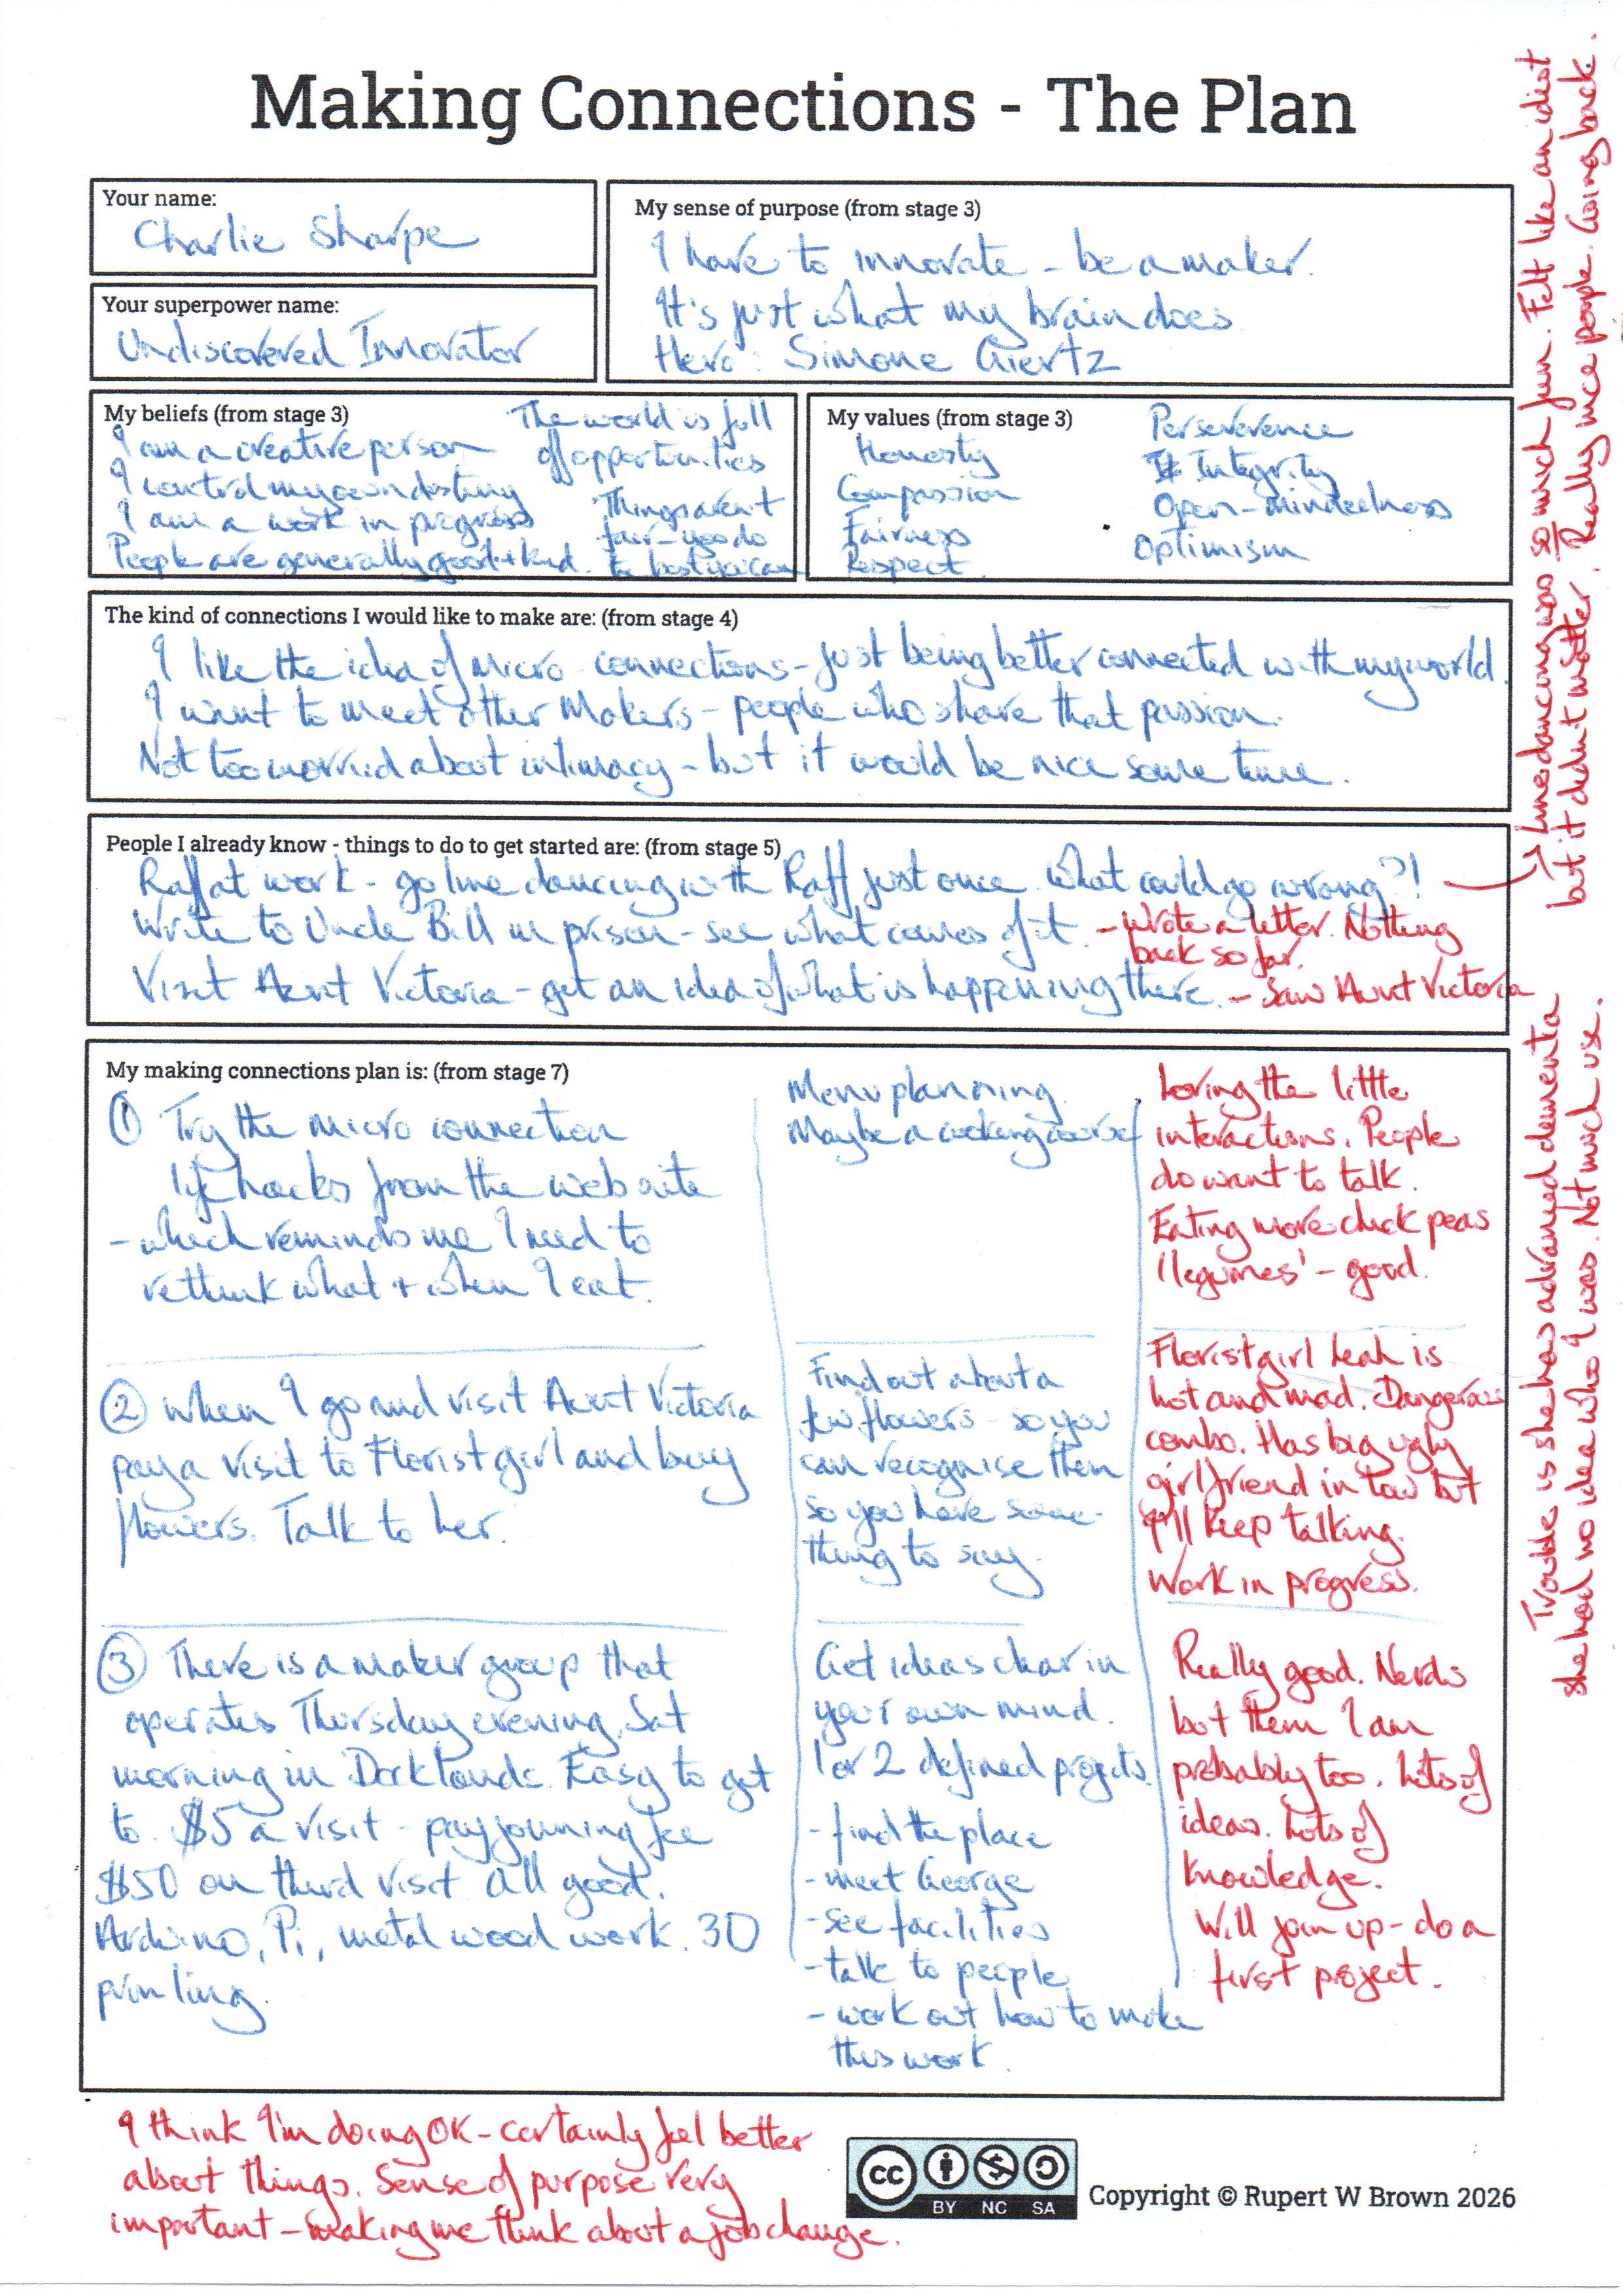 Making Connections - The Plan
Your name:
Charlie Sharpe
Your superpower name:
Undiscovered Innovator
My sense of purpose (from stage 3)
I have to innovate - be a maker.
It's just what my brain does
Hero: Simone Giertz
My beliefs (from stage 3)
I am a creative person
I control my own destiny
I am a work in progress
People are generally good + kind.
The world is full
of opportunities
Things arent
fair - you do
the best you can
My values (from stage 3)
Honesty
Compassion
Fairness
Respect
Perseverence
Integrity
Open-mindedness
Optimism
The kind of connections I would like to make are: (from stage 4)
I like the idea of Micro-connections - just being better connected with my world.
I want to meet other Makers - people who share that passion.
Not too worried about intimacy - but it would be nice some time.
People I already know - things to do to get started are: (from stage 5)
Raff at work - go line dancing with Raff just once. What could go wrong?!
Write to Uncle Bill in prison - see what comes of it. - Wrote a letter. Nothing
back so far.
Visit Aunt Victoria - get an idea of what is happening there. - Saw Aunt Victoria
Line dancing was so much fun. Felt like an idiot
but it didn't matter. Really nice people. Going back.
Trouble is she has advanced dementia
She had no idea who I was. Not much use.
My making connections plan is: (from stage 7)
① Try the micro connection
life hacks from the website
- which reminds me I need to
rethink what + when I eat.
Menu planning.
Maybe a cooking course?
Loving the little
interactions. People
do want to talk.
Eating more chick peas
'legumes' - good.
② When I go and visit Aunt Victoria
pay a visit to Florist girl and buy
flowers. Talk to her.
Find out about a
few flowers - so you
can recognise them
so you have some-
thing to say.
Florist girl Leah is
hot and mad. Dangerous
combo. Has big ugly
girlfriend in tow but
I'll keep talking.
Work in progress.
③ There is a maker group that
operates Thursday evening, Sat
morning in Docklands. Easy to get
to. $5 a visit - pay joining fee
$50 on third visit all good.
Arduino, Pi, metal wood work. 3D
printing.
Get ideas clear in
your own mind.
1 or 2 defined projects.
- find the place
- meet George
- see facilities
- talk to people
- work out how to make
this work.
Really good. Nerds
but then I am
probably too. Lots of
ideas. Lots of
knowledge.
Will join up - do a
first project.
I think I'm doing OK - certainly feel better
about things. Sense of purpose very
important - making me think about a job change.
cc BY NC SA
Copyright © Rupert W Brown 2026